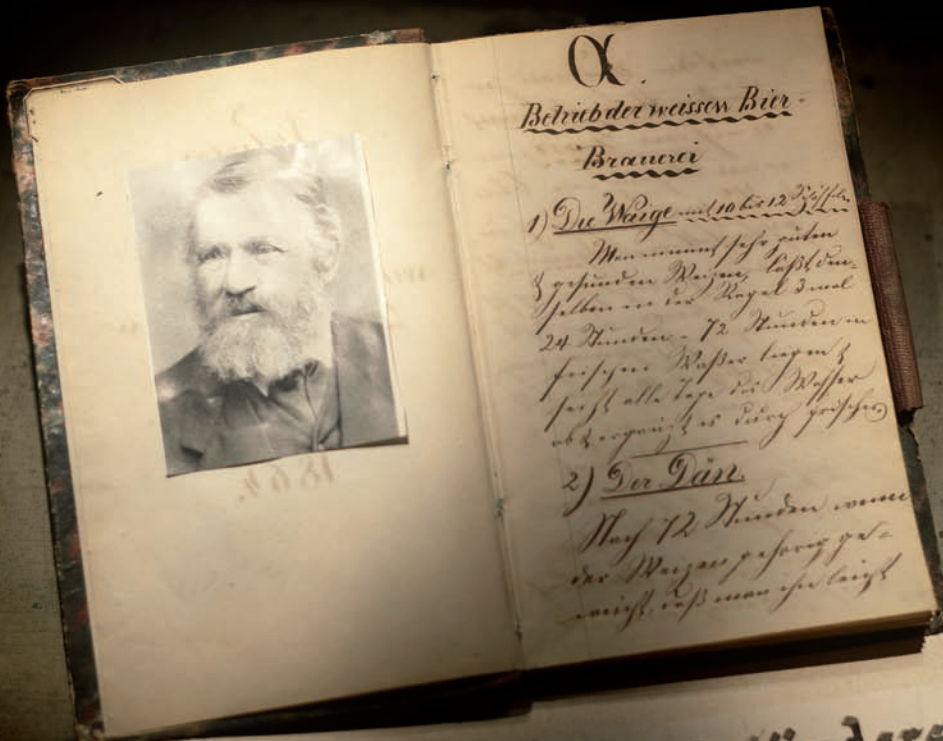 α.
Betrieb der weissen Bier-
Brauerei
1) Die Waige mit 10 bis 12 Schiffeln
Man nimmt sehr guten
& gesunden Weizen, läßt den-
selben in der Regel 3 mal
24 Stunden - 72 Stunden in
frischem Waßer liegen &
seiht alle Tage das Wasser
ab & ergänzt es durch frisches
2) Der Dän.
Nach 72 Stunden wenn
der Weizen gehörig ge-
weicht, daß man ihn leicht
1864.